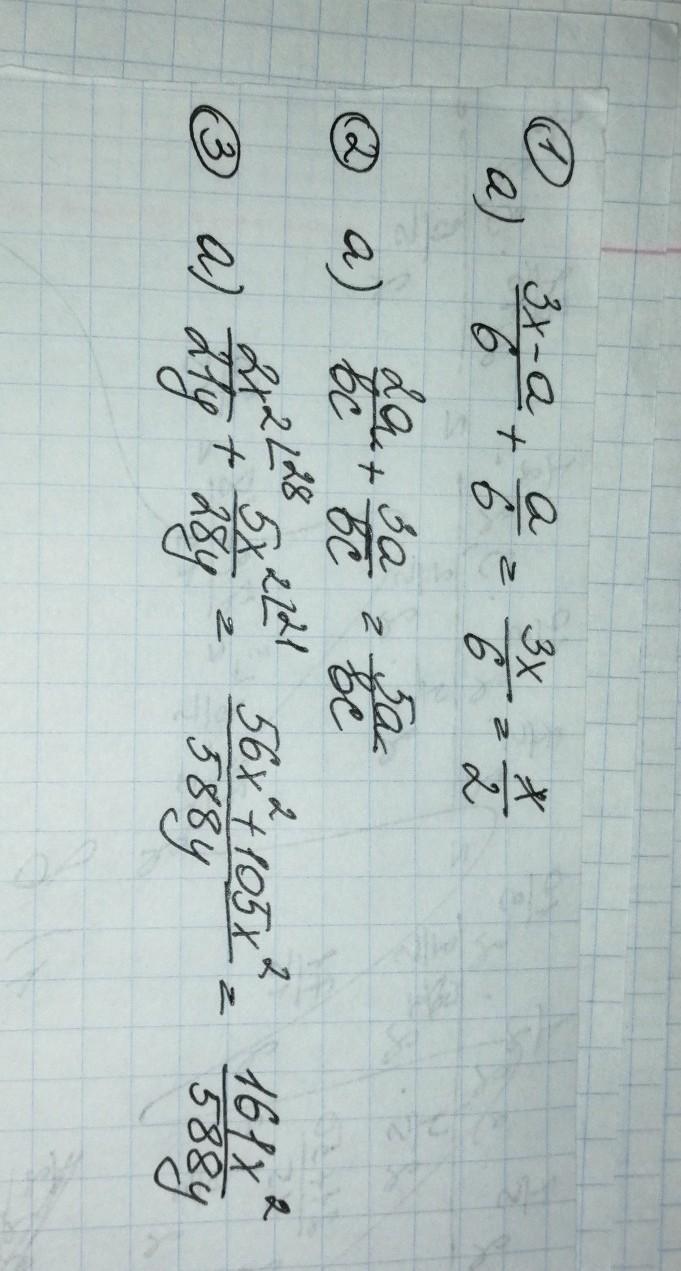 ① a) (3x-a)/6 + a/6 = 3x/6 = x/2
② a) 2a/bc + 3a/bc = 5a/bc
③ a) 2x²⌊28/21y + 5x²⌊21/28y = (56x²+105x²)/588y = 161x²/588y